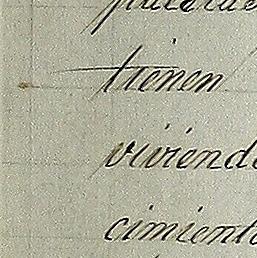 tienen
viviend
cimient